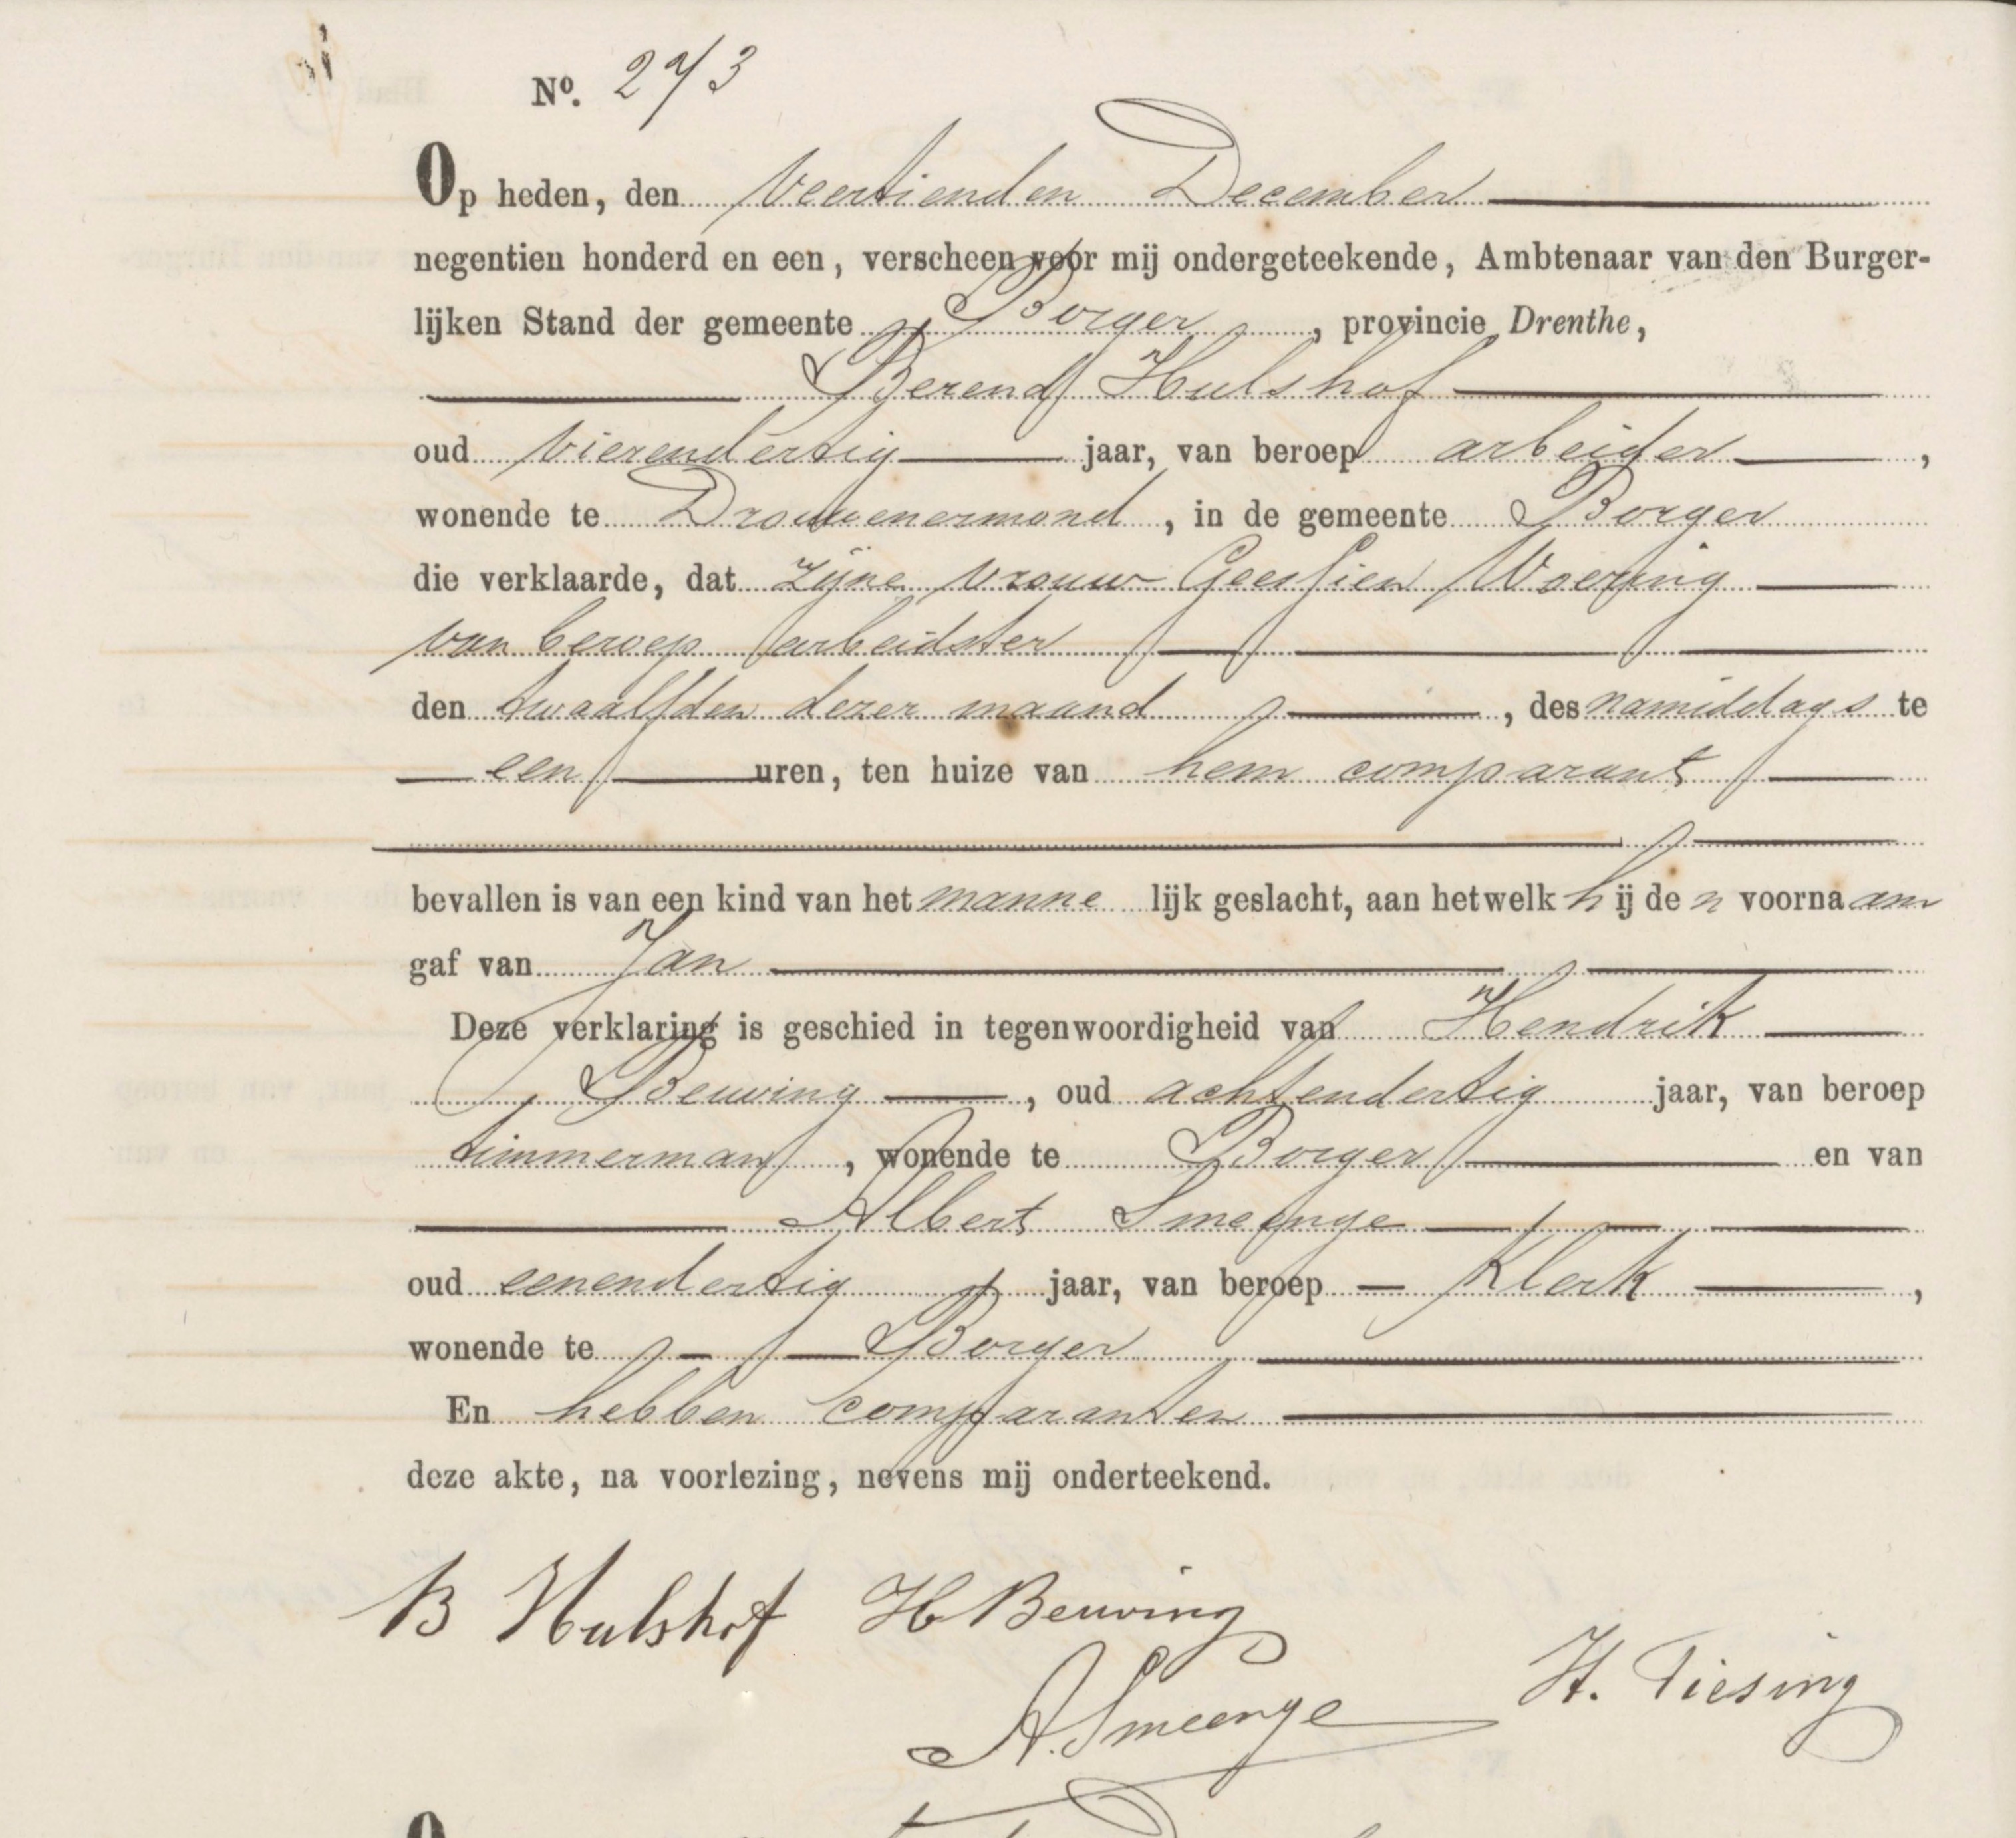 No. 273
Op heden, den veertienden December
negentien honderd en een, verscheen voor mij ondergeteekende, Ambtenaar van den Burger-
lijken Stand der gemeente Borger, provincie Drenthe,
Berend Hulshof
oud vierendertig jaar, van beroep arbeider,
wonende te Drouwenermond, in de gemeente Borger
die verklaarde, dat zijne vrouw Geessien Woering
van beroep arbeidster
den twaalfden dezer maand, des namiddags te
een uren, ten huize van hem comparant
bevallen is van een kind van het mannelijk geslacht, aan hetwelk hij den voornaam
gaf van Jan
Deze verklaring is geschied in tegenwoordigheid van Hendrik
Beuving, oud achtendertig jaar, van beroep
timmerman, wonende te Borger en van
Albert Smeenge
oud eenendertig jaar, van beroep Klerk,
wonende te Borger
En hebben comparanten
deze akte, na voorlezing, nevens mij onderteekend.
B Hulshof H Beuving
A. Smeenge H. Tiesing